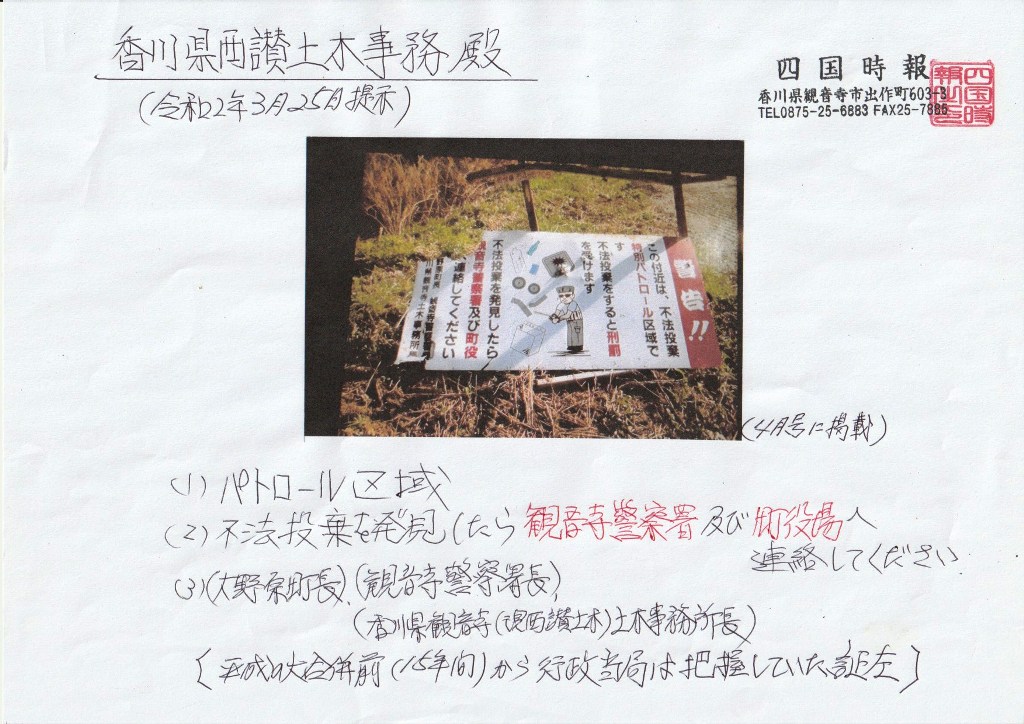 香川県西讃土木事務殿
(令和2年3月25日提示)
四国時報
香川県観音寺市出作町603-3
TEL0875-25-6883 FAX25-7886
警告!!
この付近は、不法投棄
特別パトロール区域で
す
不法投棄をすると刑罰
を受けます
不法投棄を発見したら
観音寺警察署及び町役
連絡してください
(4月号に掲載)
(1)パトロール区域
(2)不法投棄を発見したら観音寺警察署及び町役場へ
連絡してください
(3)(大野原町長)、(観音寺警察署長)、
(香川県観音寺(現西讃土木)土木事務所長)
[平成の大合併前(15年間)から行政当局は把握していた証左]